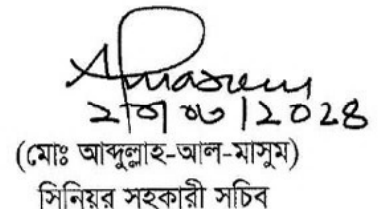 ২০২৪
(মোঃ আব্দুল্লাহ-আল-মাসুম)
সিনিয়র সহকারী সচিব